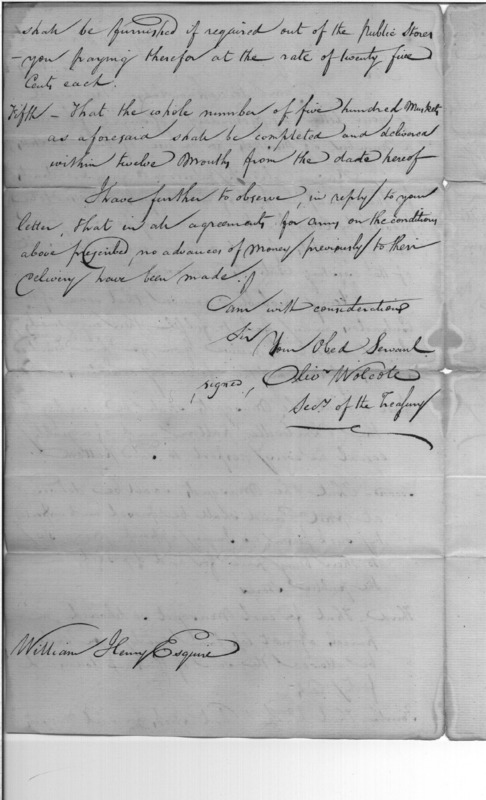 shall be furnished if required out of the Public Stores
- you paying therefor at the rate of twenty five
Cents each.
Fifth - That the whole number of five hundred Muskets
as aforesaid shall be completed and delivered
within twelve Months from the date hereof
I have further to observe, in reply to your
letter, that in all agreements for arms on the conditions
above prescribed, no advances of Money previously to their
delivery have been made. I
am with consideration
Sir
Your Obed Servant
signed, Oliv<sup>r</sup> Wolcote
Sec<sup>y</sup> of the Treasury
William Henry Esquire